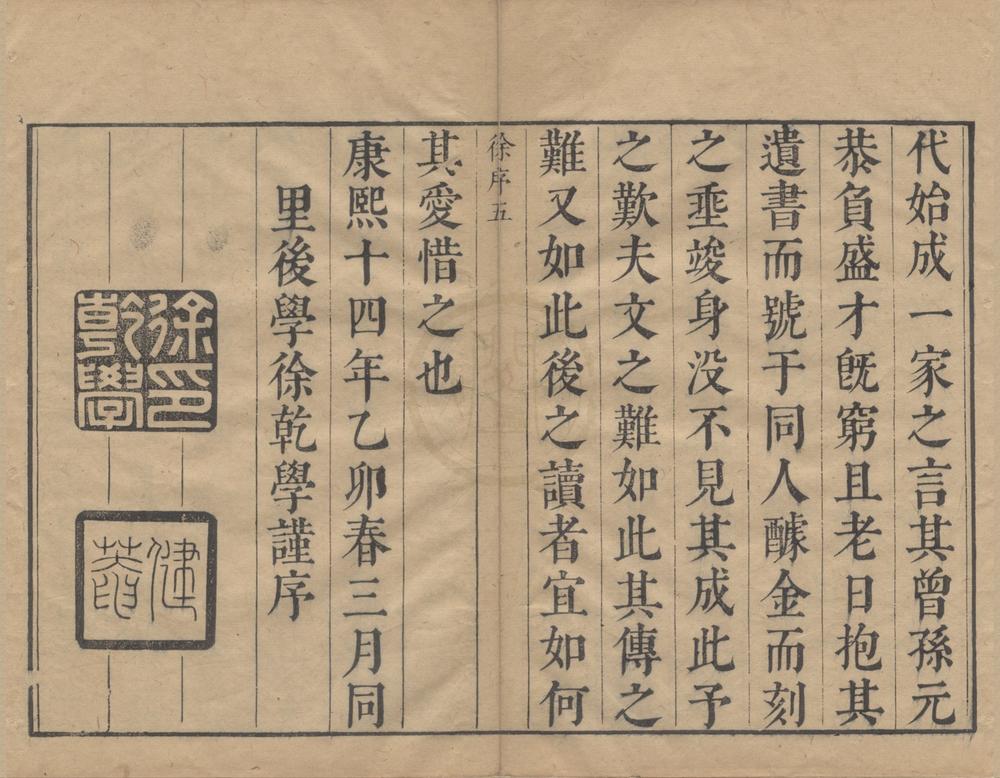 代始成一家之言其曾孫元
恭負盛才旣窮且老日抱其
遺書而號于同人醵金而刻
之垂竣身没不見其成此予
之歎夫文之難如此其傳之
難又如此後之讀者宜如何
徐序五
其愛惜之也
康熙十四年乙卯春三月同
里後學徐乾學謹序
徐印乾學
健菴